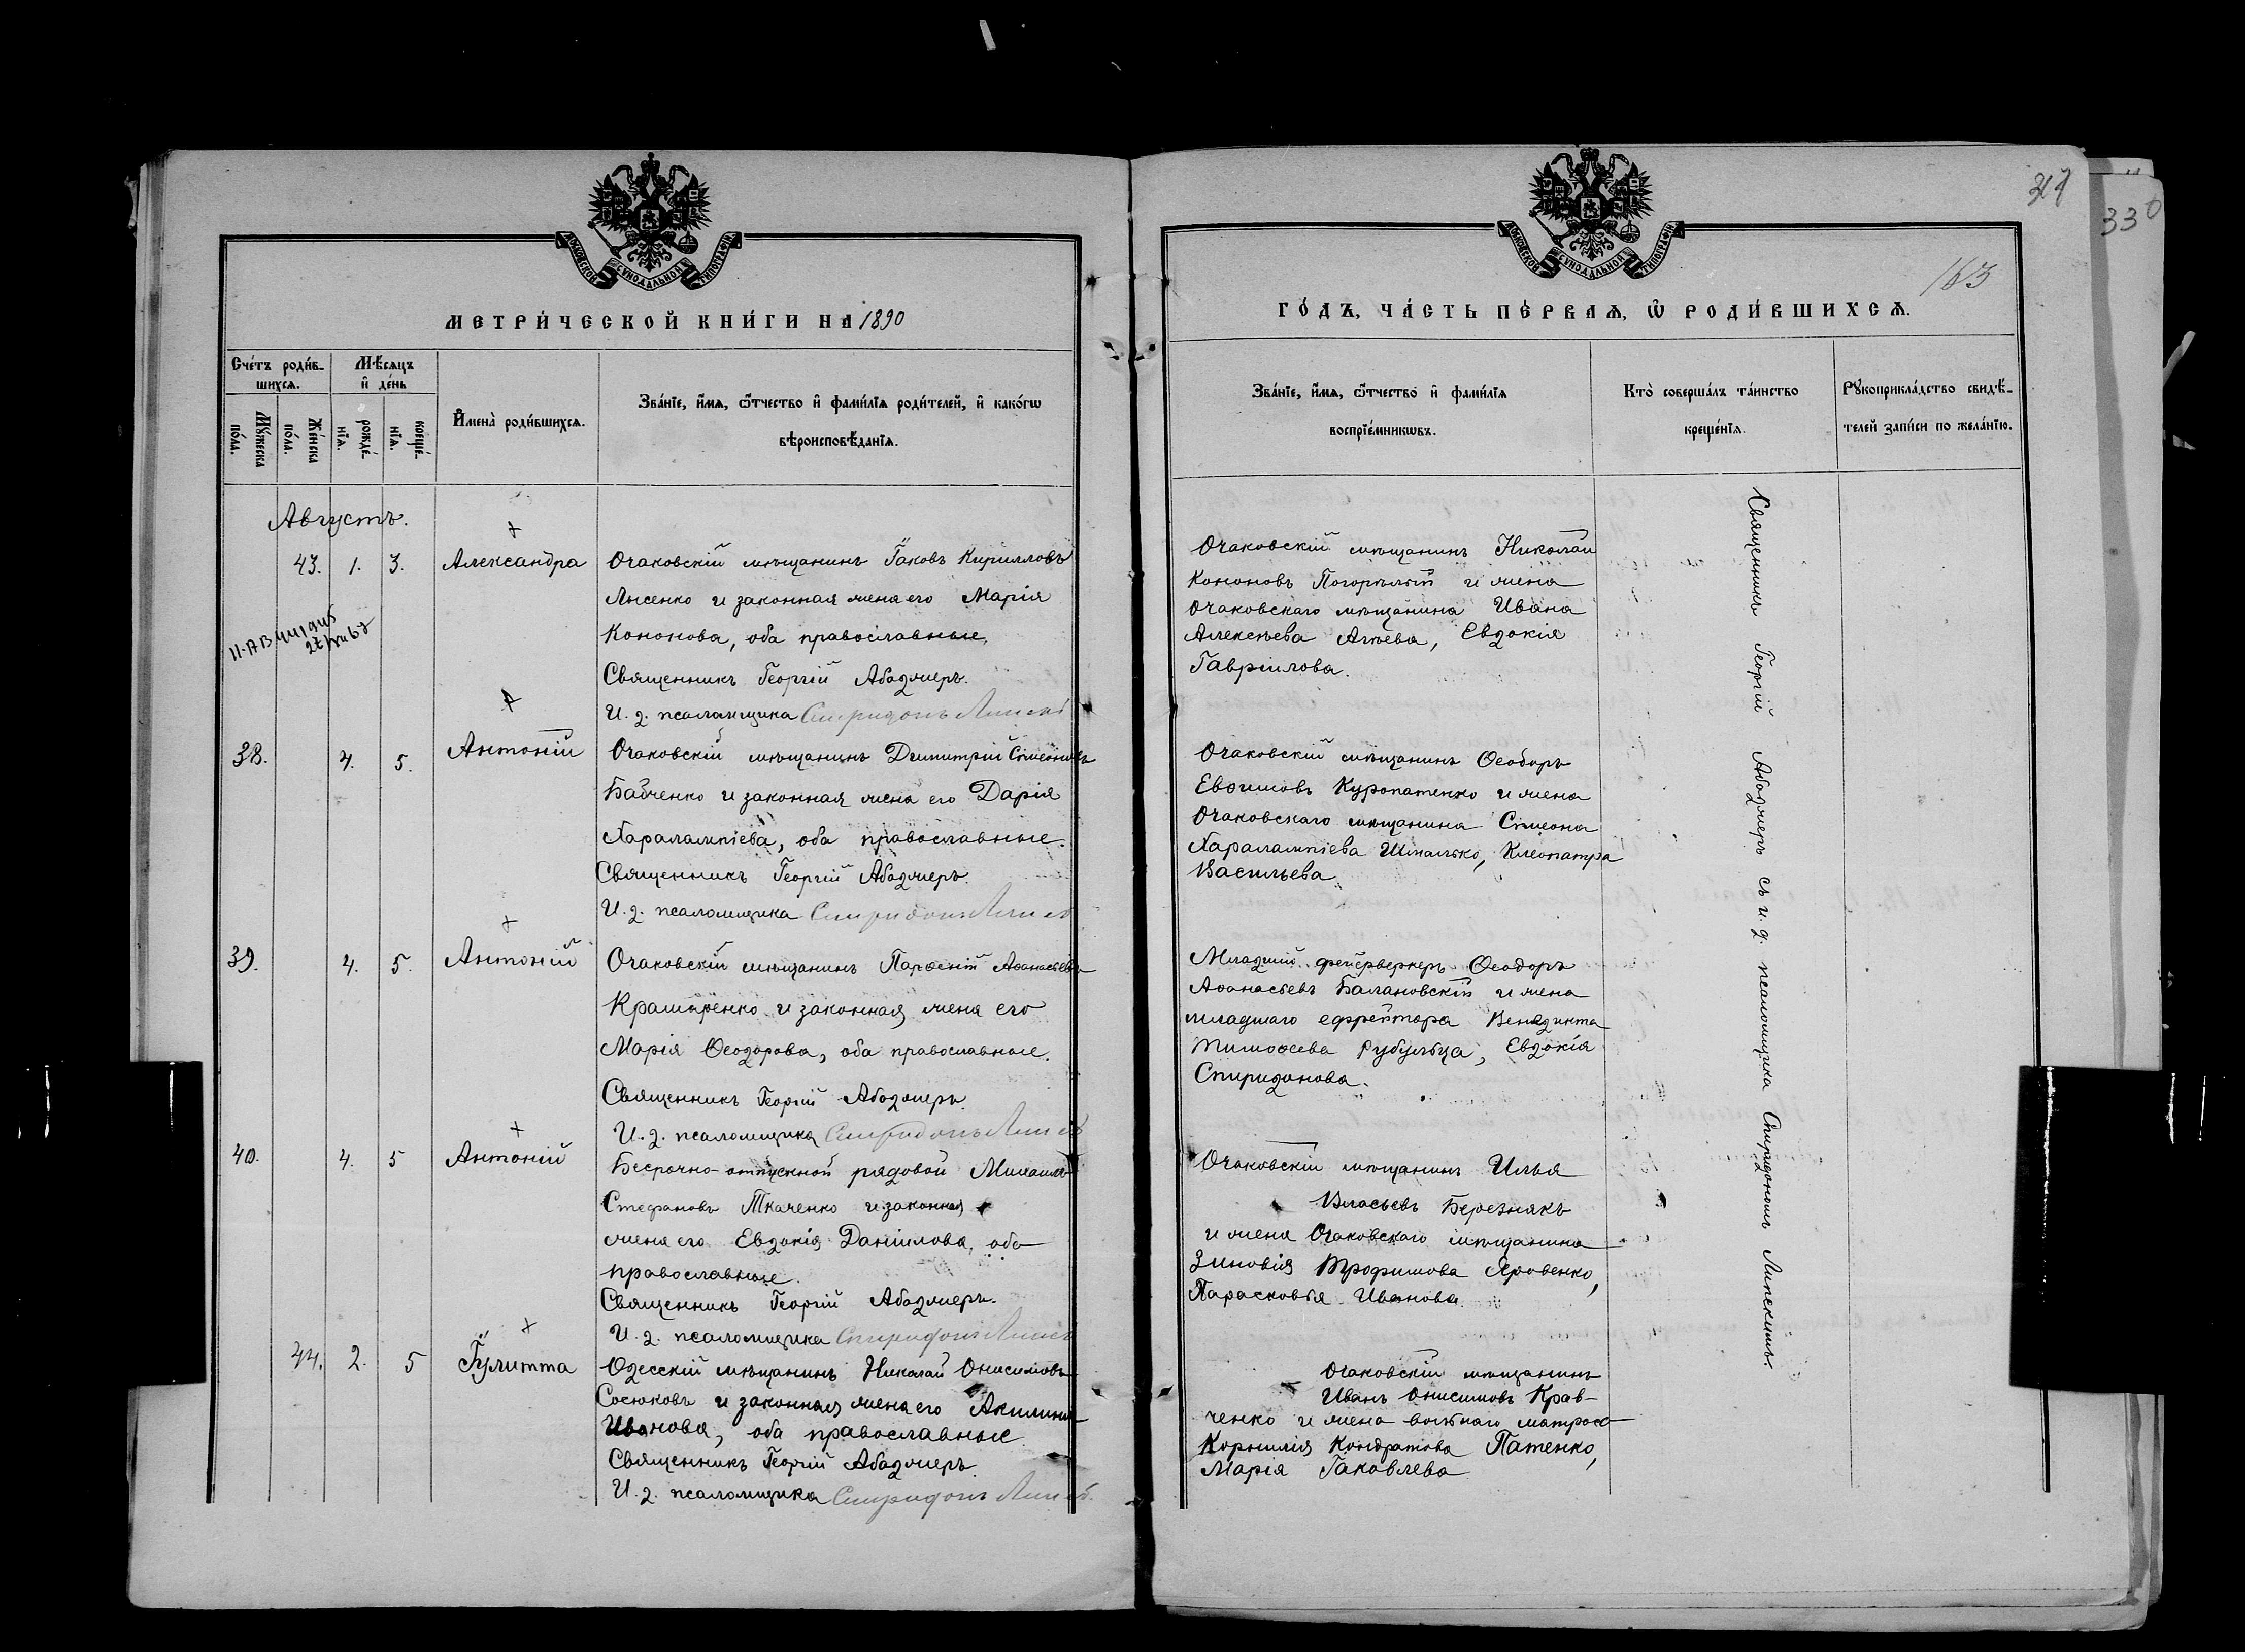 МОСКОВСКОЙ СѴНОДАЛЬНОЙ ТИПОГРАФІИ
МЕТРИ́ЧЕСКОЙ КНИ́ГИ НА 1890
Сче́тъ роди́в-
шихсѧ.
Мѣ́сѧцъ
и҆ де́нь
Мꙋ́жеска
по́ла.
Же́нска
по́ла.
рожде́-
нїѧ.
креще́-
нїѧ.
И҆мена̀ роди́вшихсѧ.
Зва́нїе, и҆́мѧ, ѻ҆́тчество и҆ фами́лїѧ роди́телей, и҆ како́гѡ
вѣроисповѣ́данїѧ.
Августъ.
43. 1. 3. Александра
Очаковскій мѣщанинъ Іаковъ Кирилловъ
Лысенко и законная жена его Марія
Кононова, оба православные.
Священникъ Георгій Абаджиеръ.
И. д. псаломщика Спиридонъ
38. 4. 5. Антоній
Очаковскій мѣщанинъ Димитрій Симеоновъ
Бабченко и законная жена его Дарія
Харалампіева, оба православные.
Священникъ Георгій Абаджиеръ.
И. д. псаломщика Спиридонъ
39. 4. 5. Антоній
Очаковскій мѣщанинъ Парѳеній Аѳанасьевъ
Крамаренко и законная жена его
Марія Ѳеодорова, оба православные.
Священникъ Георгій Абаджиеръ.
И. д. псаломщика Спиридонъ
40. 4. 5 Антоній
Безсрочно-отпускной рядовой Михаилъ
Стефановъ Ткаченко и законная
жена его Евдокія Даніилова, оба
православные.
Священникъ Георгій Абаджиеръ.
И. д. псаломщика Спиридонъ
44. 2. 5 Іулитта
Одесскій мѣщанинъ Николай Онисимовъ
Сосюковъ и законная жена его Акилина
Иванова, оба православные
Священникъ Георгій Абаджиеръ.
И. д. псаломщика Спиридонъ
33
163
МОСКОВСКОЙ СѴНОДАЛЬНОЙ ТИПОГРАФІИ
ГО́ДЪ, ЧА́СТЬ ПЕ́РВАѦ, Ѡ҆ РОДИ́ВШИХСѦ.
Зва́нїе, и҆́мѧ, ѻ҆́тчество и҆ фами́лїѧ
воспрїе́мникѡвъ.
Кто̀ соверша́лъ та́инство
креще́нїѧ.
Рꙋкоприкла́дство свидѣ́-
телей за́писи по жела́нїю.
Очаковскій мѣщанинъ Николай
Кононовъ Погорѣлый и жена
Очаковскаго мѣщанина Ивана
Алексѣева Агѣева, Евдокія
Гавріилова.
Очаковскій мѣщанинъ Ѳеодоръ
Евѳимовъ Куропатенко и жена
Очаковскаго мѣщанина Симеона
Харалампіева Шмалько, Клеопатра
Васильева
Младшій фейерверкеръ Ѳеодоръ
Аѳанасьевъ Балановскій и жена
младшаго ефрейтора Венедикта
Тимоѳеева Рубульца, Евдокія
Спиридонова.
Очаковскій мѣщанинъ Илья
Власьевъ Березнякъ
и жена Очаковскаго мѣщанина
Зиновія Трофимова Яровенко,
Парасковья Иванова.
Очаковскій мѣщанинъ
Иванъ Онисимовъ Крав-
ченко и жена матроса
Корнилія Кондратова Патенко,
Марія Іаковлева
Священникъ Георгій Абаджиеръ съ и. д. псаломщика Спиридономъ Липскимъ.